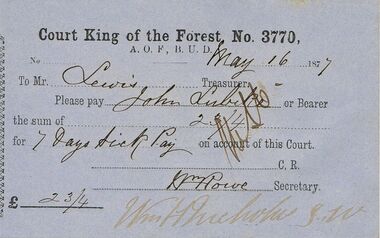 Court King of the Forest, No. 3770,
A. O. F., B. U. D.
No May 16 1877
To Mr. Lewis Treasurer,
Please pay John , or Bearer
the sum of 2 3/4
for 7 Days Sick Pay on account of this Court.
C. R.
Wm Rowe Secretary.
£ 2 3/4
Wm Nicholas J. W